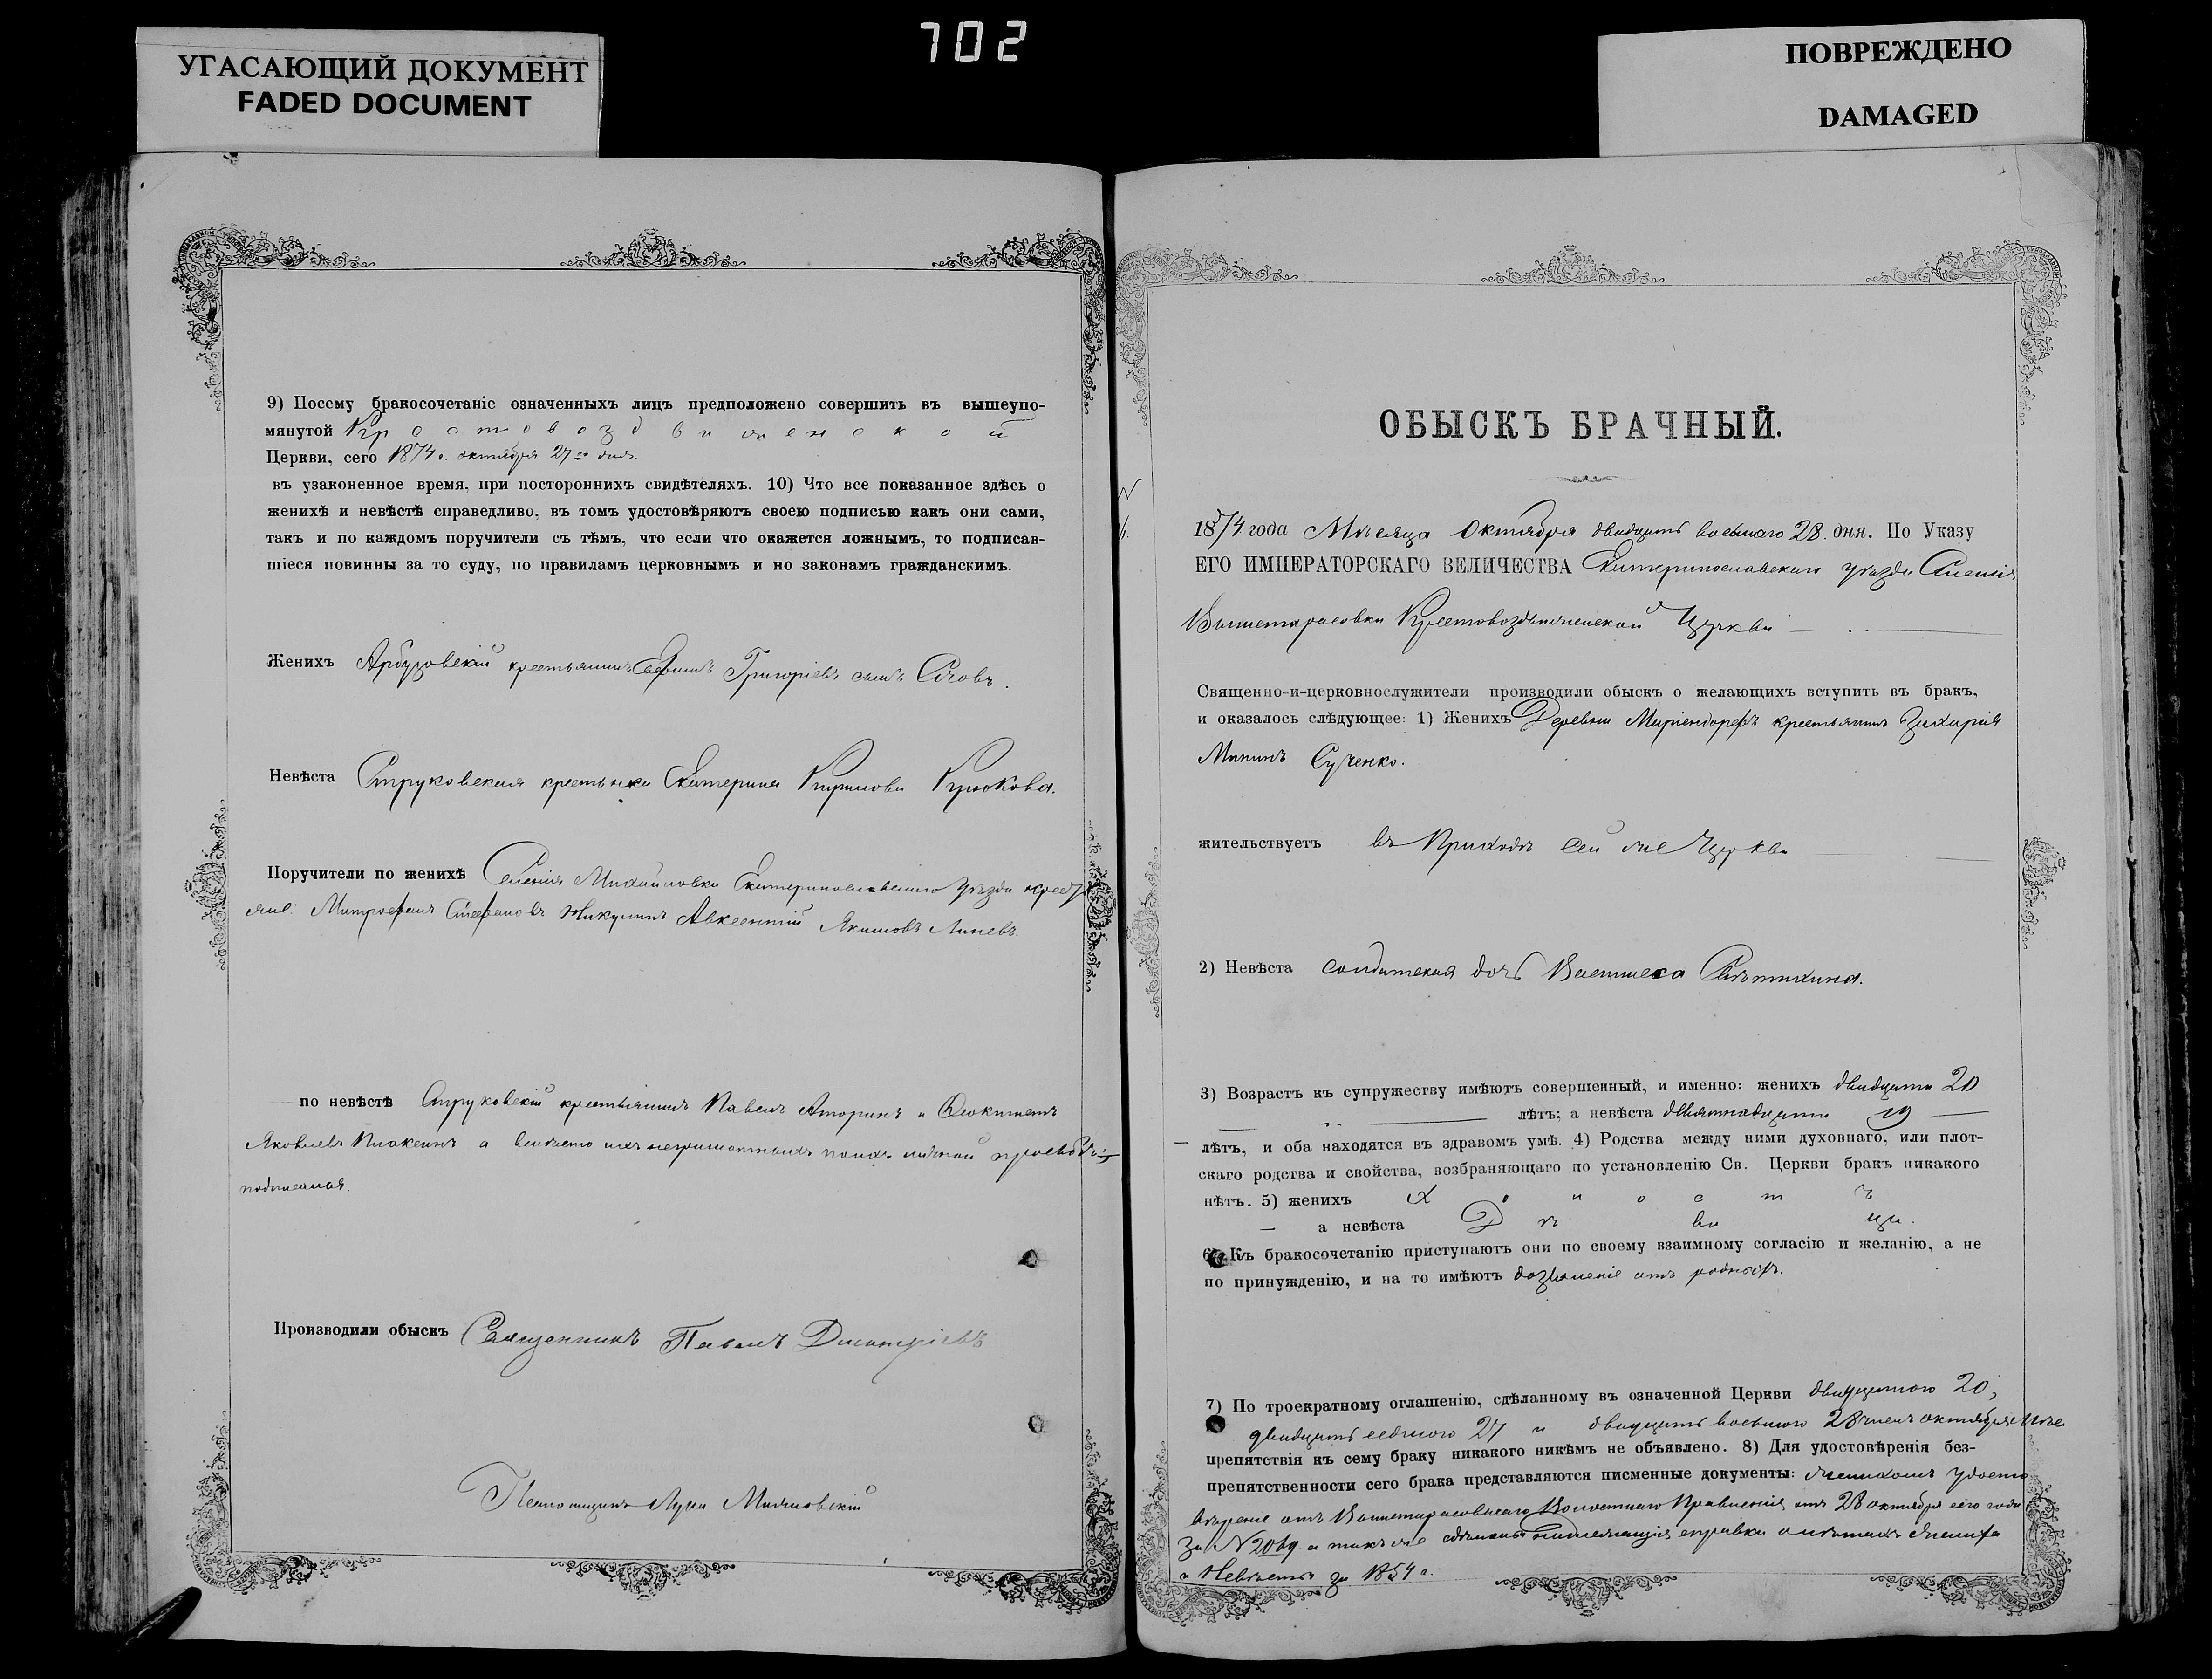 702
УГАСАЮЩИЙ ДОКУМЕНТ
FADED DOCUMENT
ПОВРЕЖДЕНО
DAMAGED
9) Посему бракосочетаніе означенныхъ лицъ предположено совершить въ вышеупо-
мянутой Крестовоздвиженской
Церкви, сего 1874 г. октября 27го дня.
въ узаконенное время, при постороннихъ свидѣтеляхъ. 10) Что все показанное здѣсь о
женихѣ и невѣстѣ справедливо, въ томъ удостовѣряютъ своею подписью какъ они сами,
такъ и по каждомъ поручители съ тѣмъ, что если что окажется ложнымъ, то подписав-
шіеся повинны за то суду, по правиламъ церковнымъ и по законамъ гражданскимъ.
Женихъ Арбузовскій крестьянинъ Григоріевъ сынъ
Невѣста Струковская крестьянка Екатерина Кирилова Крюкова.
Поручители по женихѣ Селенія Михайловки Екатеринославскаго уѣзда крест
яне: Митрофанъ Стефановъ Никулинъ Авксентій Якимовъ Линевъ.
по невѣстѣ Струковскій крестьянинъ Павелъ и Феоктистъ
Яковлевъ а вмѣсто ихъ неграмотныхъ по ихъ личной прозьбѣ
подписался.
Производили обыскъ Священникъ Павелъ Дмитріевъ
Псаломщикъ Лука
ОБЫСКЪ БРАЧНЫЙ.
1874 года Мѣсяца Октября двадцать восьмаго 28 дня. По Указу
ЕГО ИМПЕРАТОРСКАГО ВЕЛИЧЕСТВА Екатеринославскаго уѣзда Селенія
Вышетарасовки Крестовоздвиженской Церкви
Священно-и-церковнослужители производили обыскъ о желающихъ вступить въ бракъ,
и оказалось слѣдующее: 1) Женихъ Деревни Маріендорфъ крестьянинъ Захарія
Мининъ Сученко.
жительствуетъ въ Приходѣ сей же Церкви
2) Невѣста солдатская дочь Васлиса Сѣтихина.
3) Возрастъ къ супружеству имѣютъ совершенный, и именно: женихъ двадцати 20
лѣтъ; а невѣста девятнадцати 19
лѣтъ, и оба находятся въ здравомъ умѣ. 4) Родства между ними духовнаго, или плот-
скаго родства и свойства, возбраняющаго по установленію Св. Церкви бракъ никакого
нѣтъ. 5) женихъ Холостъ
а невѣста Дѣвица.
6) Къ бракосочетанію приступаютъ они по своему взаимному согласію и желанію, а не
по принужденію, и на то имѣютъ дозволеніе отъ родныхъ.
7) По троекратному оглашенію, сдѣланному въ означенной Церкви двадцатаго 20,
двадцать седмого 27 и двадцать восьмого 28 чиселъ октября мѣс
препятствія къ сему браку никакого никѣмъ не объявлено. 8) Для удостовѣренія без-
препятственности сего брака представляются писменные документы: женихомъ удосто
вѣреніе отъ Вышетарасовскаго Волостнаго Правленія отъ 28 октября сего года
за №2069 а такъ же сдѣланы надлежащія справки о лѣтахъ жениха
и Невѣсты за 1854 г.